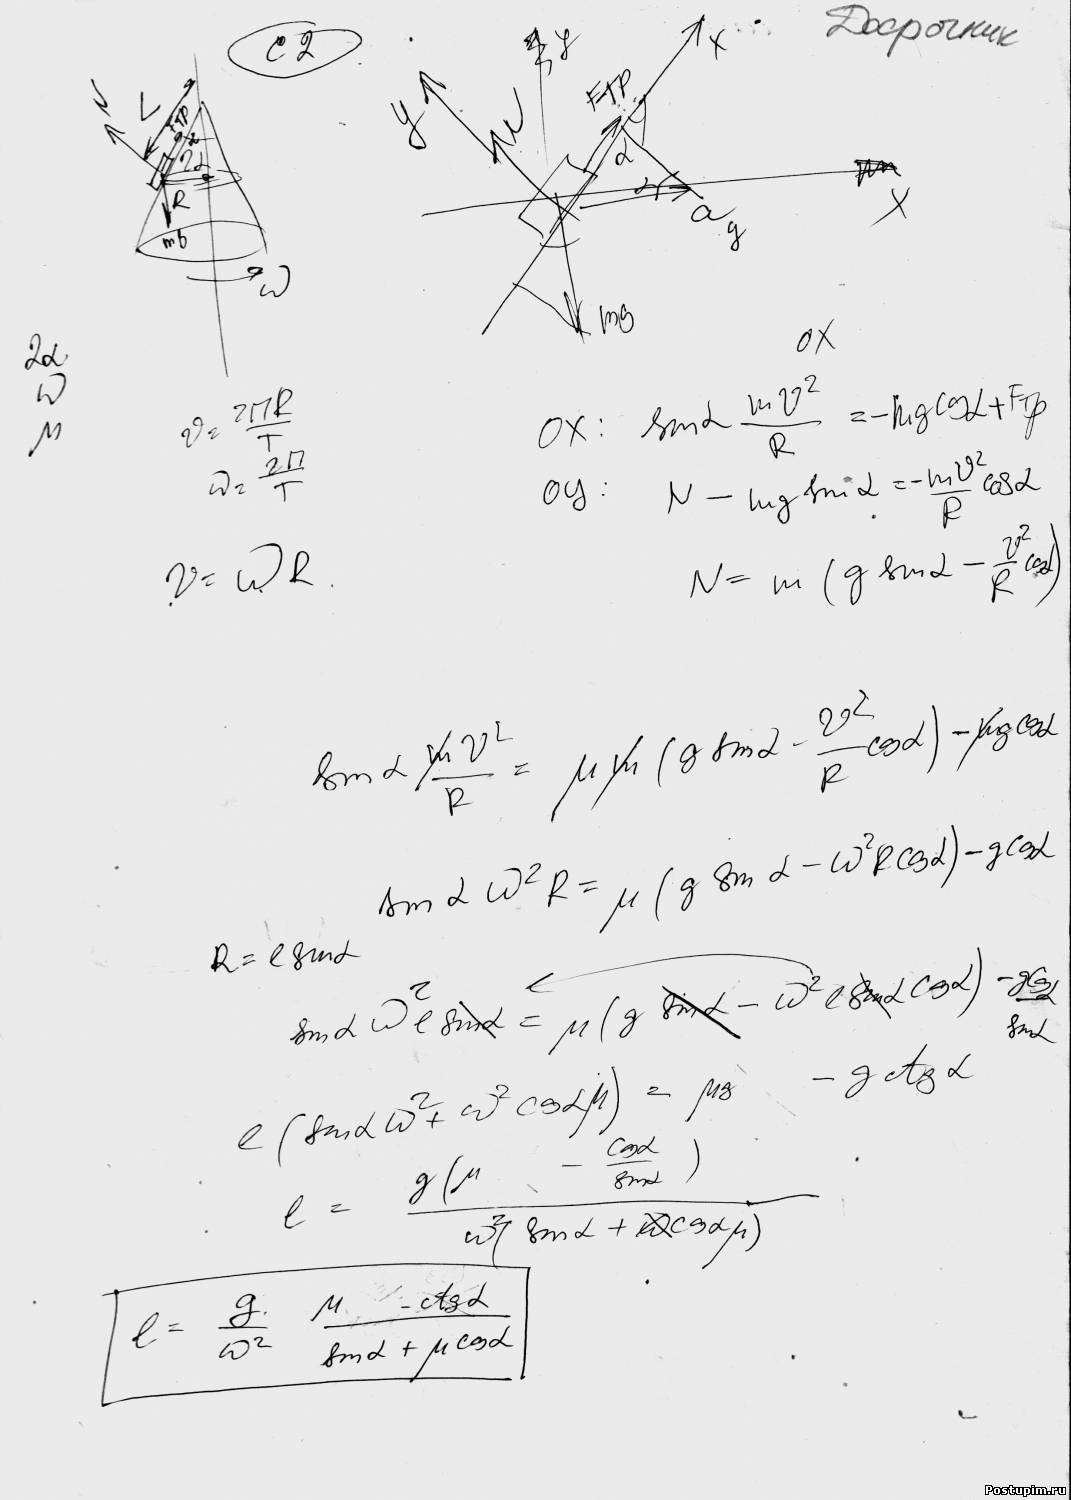 Досрочник
С2
y
x
N
L
Fтр
2α
R
mg
ω
y
N
y
Fтр
x
α
α
aу
X
mg
2α
ω
μ
OX
v = 2ПR/T
ω = 2П/T
v = ωR.
OX: sinα mv²/R = -mg cosα + Fтр
OY: N - mg sinα = -mv²/R cosα
N = m (g sinα - v²/R cosα)
sinα mv²/R = μm (g sinα - v²/R cosα) - mg cosα
sinα ω²R = μ (g sinα - ω²R cosα) - g cosα
R = l sinα
sinα ω² l sinα = μ (g sinα - ω² l sinα cosα) - g cosα/sinα
l (sinα ω² + ω² cosα μ) = μg - g ctgα
l = g (μ - cosα/sinα) / ω² (sinα + cosα μ)
l = g/ω² (μ - ctgα)/(sinα + μ cosα)
Postupim.ru